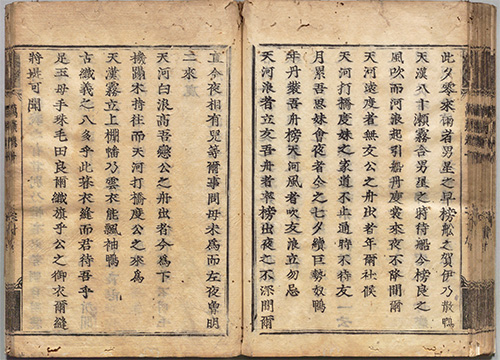 此夕零来雨者男星之早榜舩之賀伊乃散鴨
天漢八十瀬霧合男星之時待舩今榜良之
風吹而河浪起引舩丹度裳来夜不降間爾
天河遠度者無友公之舟出者年爾社候
天河打橋度妹之家道不止通時不待友
月累吾思妹會夜者今之七夕續巨勢奴鴨
年丹装吾舟榜天河風者吹友浪立勿忌
天河浪者立友吾舟者率榜出夜之不深間爾
直今夜相有兒等爾事問母未為而左夜曽明
二来
天河白浪高吾戀公之舟出者今為下
機蹋木持往而天河打橋度公之来為
天漢霧立上棚幡乃雲衣能飄袖鴨
古織義之八多乎此暮衣縫而君待吾乎
足玉母手珠毛由良爾織旗乎公之御衣爾縫
将堪可聞